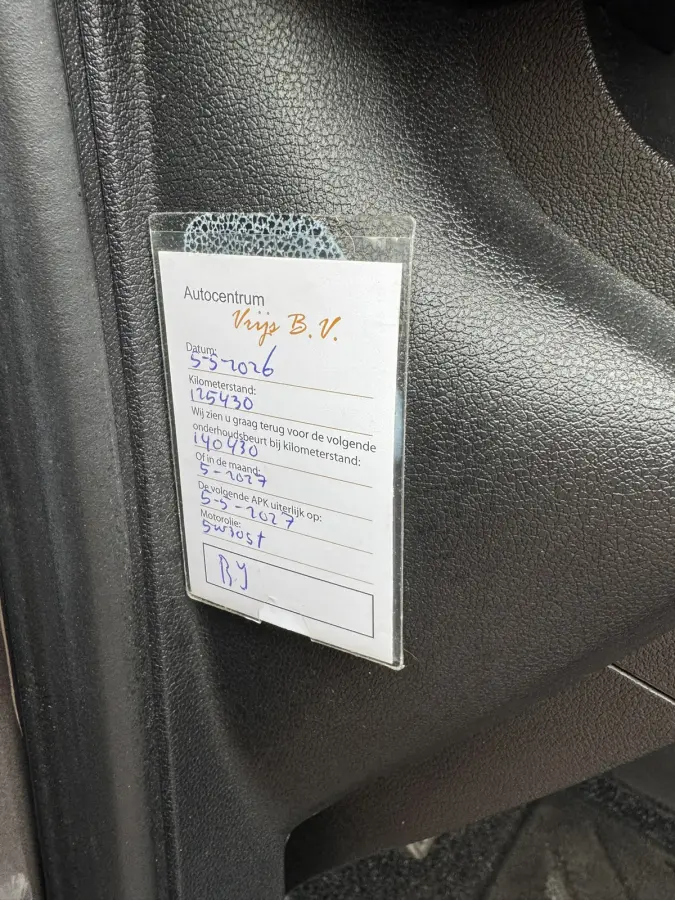 Autocentrum
Vrijs B.V.
Datum:
5-5-2026
Kilometerstand:
125430
Wij zien u graag terug voor de volgende
onderhoudsbeurt bij kilometerstand:
140430
Of in de maand:
5-2027
De volgende APK uiterlijk op:
5-5-2027
Motorolie:
5w30st